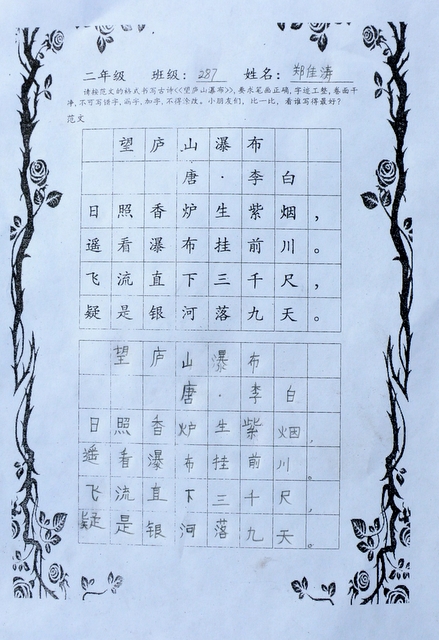 二年级 班级：287 姓名：郑佳涛
请按范文的格式书写古诗《<望庐山瀑布》>，要求笔画正确，字迹工整，卷面干
净，不可写错字，漏字，加字，不得涂改。小朋友们，比一比，看谁写得最好？
范文
望庐山瀑布
唐·李白
日照香炉生紫烟，
遥看瀑布挂前川。
飞流直下三千尺，
疑是银河落九天。
望庐山瀑布
唐·李白
日照香炉生紫烟，
遥看瀑布挂前川。
飞流直下三千尺，
疑是银河落九天。